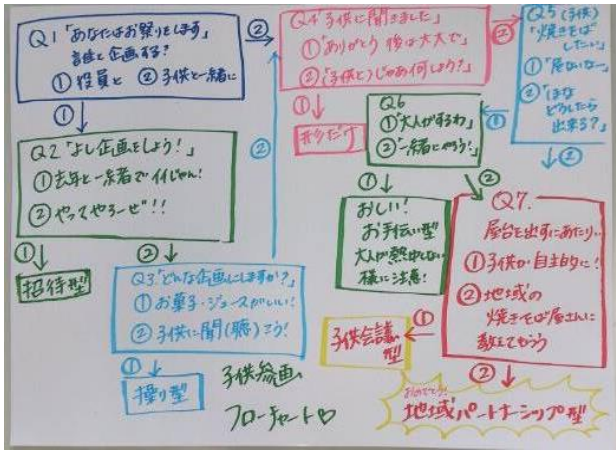 Q1「あなたはお祭りをします」
誰と企画する?
①役員と ②子供と一緒に
①
②
Q2「よし企画をしよう!」
①去年と一緒でイイじゃん!
②やってやろーぜ!!
①
②
招待型
Q3「どんな企画にしますか?」
①お菓子・ジュースがいい!
②子供に聞(聴)こう!
①
②
操り型
Q4「子供に聞きました」
①「ありがとう 後は大人で」
②「(子供と)じゃあ何しよう?」
①
②
形だけ
Q5(子供)
「焼きそば
したい」
①「危ないなー」
②「ほな
どうしたら
出来る?」
①
②
Q6
①「大人がするわ」
②「一緒にやろう!」
①
②
おしい!
お手伝い型
大人が熱中しない
様に注意!
Q7.
屋台を出すにあたり…
①子供が自主的に!
②地域の
焼きそば屋さんに
教えてもらう
①
②
子供会議
型
おめでとう!
地域パートナーシップ型
子供参画
フローチャート♡